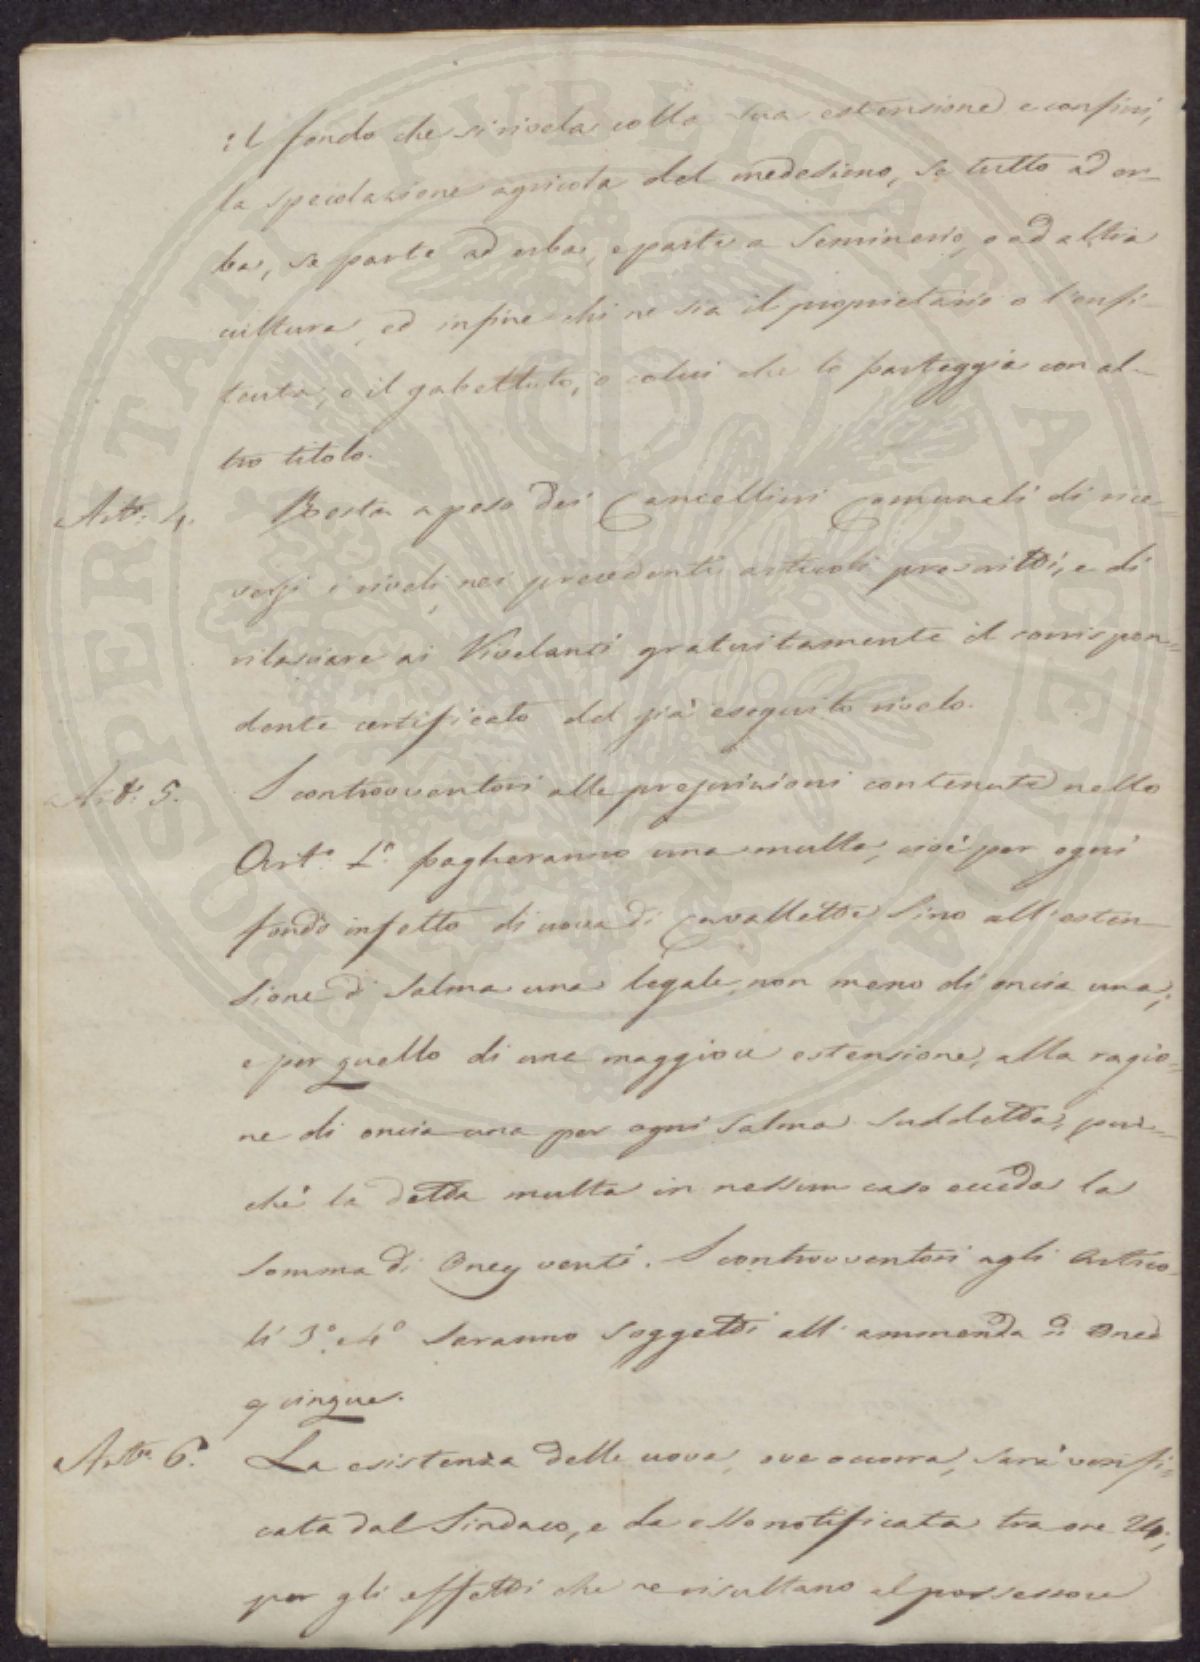 il fondo che si rivela colla sua estensione e confini,
la specolazione agricola del medesimo, se tutto ad er-
ba, se parte ad erba, e parte a Seminerio, o ad altra
cultura, ed infine chi ne sia il proprietario o l'enfi-
teuta, o il gabelluto, o colui che lo parteggia con al-
tro titolo.
Arto. 4. Resta a peso dei Cancellieri Comunali di rice-
versi i riveli, nei precedenti articoli prescritti, e di
rilasciare ai Rivelanti gratuitamente il corrispon-
dente certificato del già eseguito rivelo.
Arto. 5. I controventori alle prescrizioni contenute nello
Arto. 1o. pagheranno una multa, cioè per ogni
fondo infetto di uova di Cavallette sino all'esten-
sione di salma una legale, non meno di oncia una;
e per quello di una maggiore estensione, alla ragio-
ne di oncia una per ogni salma suddetta, pur-
chè la detta multa in nessun caso ecceda la
somma di Oncy venti. I controventori agli artico-
li 3o. e 4o saranno soggetti all'ammenda di Once
cinque.
Arto. 6. La esistenza delle uova, ove occorra, sarà verifi-
cata dal Sindaco, e da esso notificata tra ore 24;
per gli effetti che ne risultano al possessore
PROSPERITATI PVBLICAE AVGENDAE